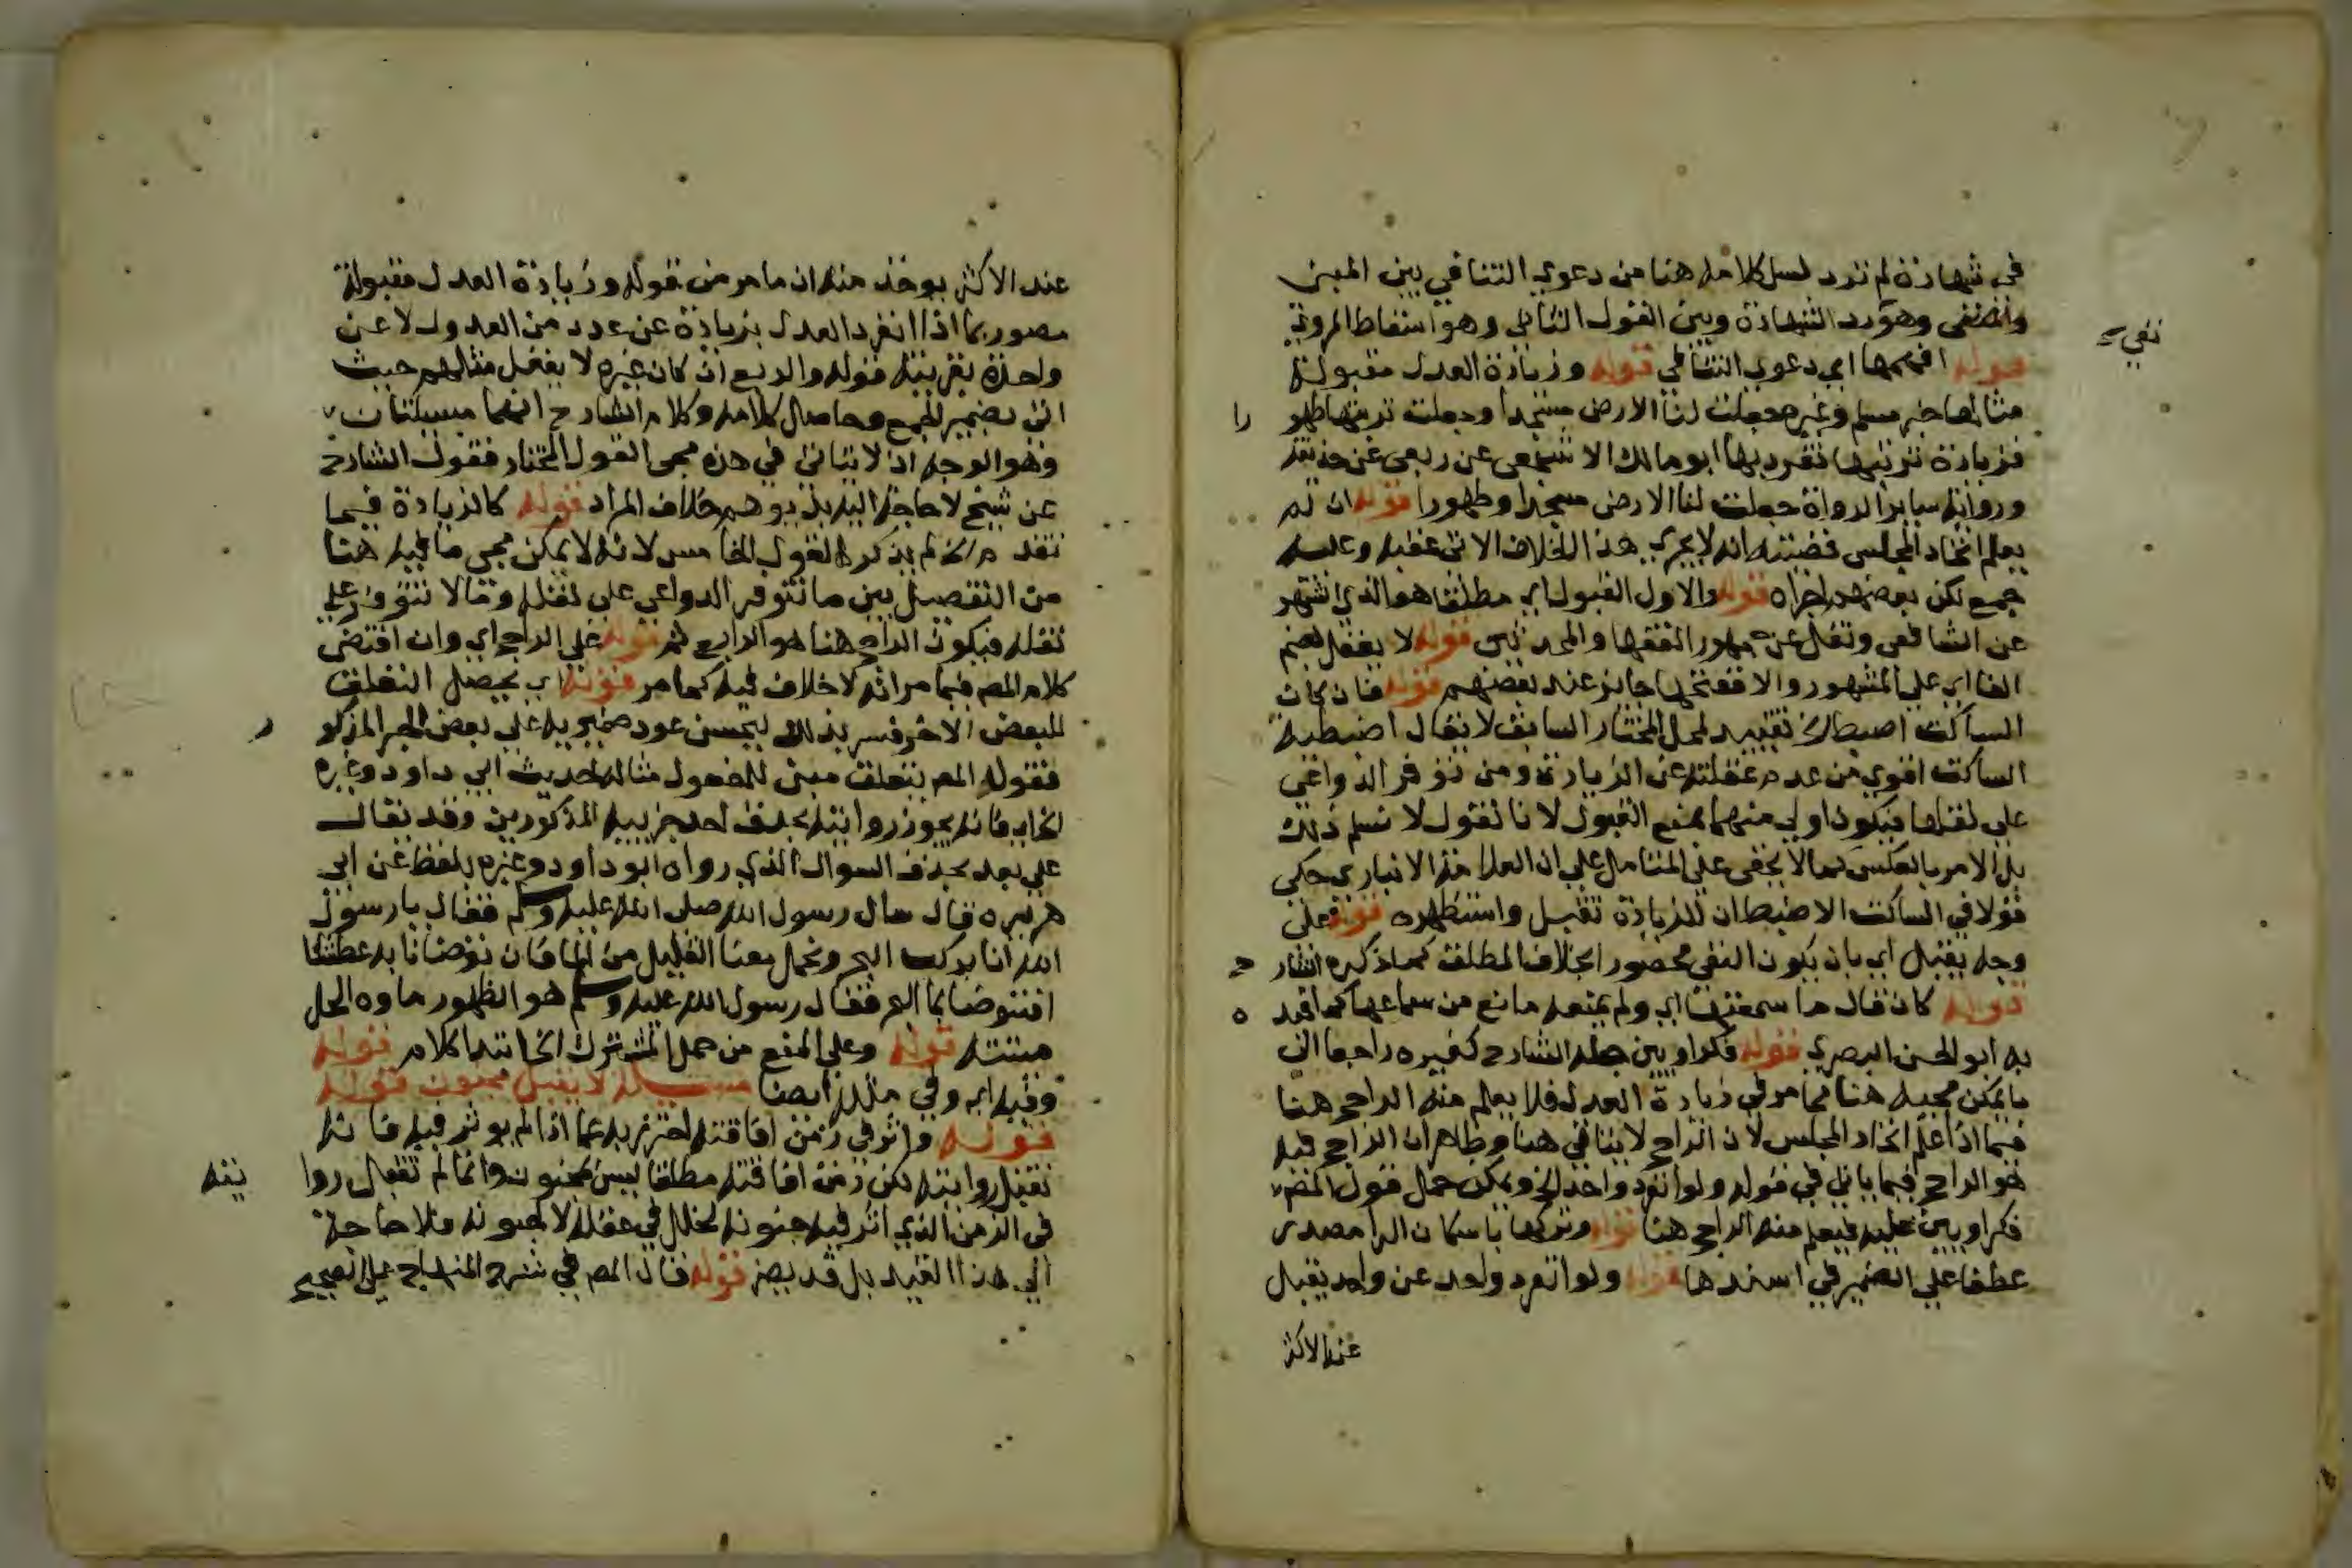 في شهادة لم ترد لسل كلامه هنا من دعوي التنافي بين المبني
والمنفى وهو رد الشهادة وبين القول الثاني وهو اسقاط المروي
نفي
قوله افهمها اي دعوي التنافي قوله وزيادة العدل مقبولة
مثالها خبر مسلم وغيره جعلت لنا الارض مسجدا وجعلت تربتها طهو را
فزيادة تربتها تفرد بها ابو مالك الاشجعي عن ربعي عن حذيفة
ورواية ساير الرواة جعلت لنا الارض مسجدا وطهورا قوله ان لم
يعلم اتحاد المجلس قضيته انه لا يجري هذا الخلاف الاتي عقبه وعليه
جمع لكن بعضهم اجراه قوله والاول القبول اي مطلقا هو الذي اشتهر
عن الشافعي ونقل عن جمهور الفقها والمحدثين قوله لا يغفل بضم
الفا اي علي المشهور والا ففتحها جايز عند بعضهم قوله فان كان
الساكت اضبط الخ تقييد لمحل المختار السابق لا يقال اضبطية
الساكت اقوي من عدم غفلته عن الزيادة ومن توفر الدواعي
علي نقلها فيكون اولي منهما بمنع القبول لانا نقول لا نسلم ذلك
بل الامر بالعكس كما لا يخفى علي المتامل علي ان العلامة الانباري حكي
قولا في الساكت الاضبط ان الزيادة تقبل واستظهره قوله فعلى
وجه يقبل اي بان يكون النفي محصور الخلاف المطلق كما ذكره الشار ح
قوله كان قال ما سمعتها اي ولم يمنعه مانع من سماعها كما قيد ه
به ابو الحسن البصري قوله فكراويين جعله الشارح كغيره راجعا الي
ما يمكن مجيه هنا مما مر في زيادة العدل فلا يعلم منه الراجح هنا
فيما اذا علم اتحاد المجلس لان الراجح لا ينافي هنا وظاهر ان الراجح فيه
هو الراجح فيما ياتي في قوله ولو انفرد واحد الخ ويمكن حمل قول المص
فكراويين عليه فيعلم منه الراجح هنا قوله وتركها باسكان الرا مصدر
عطفا علي الضمير في اسندها قوله ولو انفرد واحد عن واحد يقبل
عند الاكثر
عند الاكثر يوخذ منه ان ما مر من قوله وزيادة العدل مقبولة
مصور بما اذا انفرد العدل بزيادة عن عدد من العدول لا عن
واحدة بقرينة قوله والربع ان كان غيره لا يغفل مثلهم حيث
اتى بضمير الجمع وحاصل كلامه وكلام الشارح انهما مسيلتان
وهو الوجه اذ لا يتاتي في هذه مجى القول المختار فقول الشارح
عن شيخ لا حاجة اليه بل يوهم خلاف المراد قوله كالزيادة فيما
تقدم الخ لم يذكر القول الخامس لانه لا يمكن مجي ما فيه هنا
من التفصيل بين ما تتوفر الدواعي على نقله وما لا تتوفر علي
نقله فيكون الراجح هنا هو الرابع ثم قوله علي الراجح اي وان اقتضى
كلام المص فيما مر انه لا خلاف فيه كما مر قوله اي يحصل التعلق
للبعض الاخر فسر بذلك ليحسن عود ضمير به على بعض الخبر المذكو ر
فقول المص يتعلق مبنى للمفعول مثاله حديث ابي داود وغيره
الخ اي فانه يجوز روايته بحذف احد جزييه المذكورين وقد يقال
علي بعد بحذف السوال الذي رواه ابو داود وغيره بلفظ عن ابي
هريره قال سال رسول الله صلى الله عليه وسلم فقال يا رسول
الله انا نركب البحر ونحمل معنا القليل من الما فان توضانا به عطشنا
افنتوضا بما البحر فقال رسول الله عليه وسلم هو الطهور ماوه الحل
ميتته قوله وعلي المنع من حمل المشترك الخ ابتدا كلام قوله
وفيه اي وفي مثله ايضا مسيلة لا يقبل مجنون قوله
قوله واثر في زمن افاقته احترز به عما اذا لم يوثر فيه فانه
تقبل روايته لكن زمن افاقته مطلقا ليس بمجنون وانما لم تقبل روا يته
في الزمن الذي اثر فيه جنونه لخلل في عقله لا لجنونه فلا حاجة
الي هذا القيد بل قد يضر قوله قال المص في شرح المنهاج على الصحيح